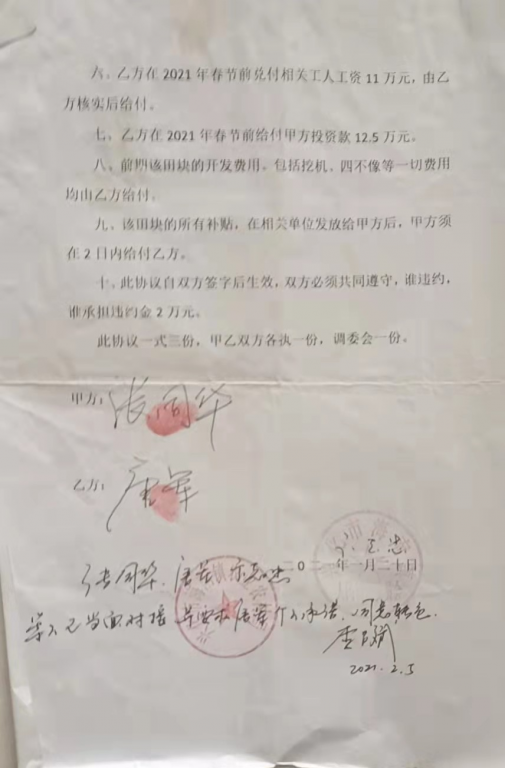 六、乙方在 2021 年春节前兑付相关工人工资 11 万元，由乙
方核实后给付。
七、乙方在 2021 年春节前给付甲方投资款 12.5 万元。
八、前期该田块的开发费用。包括挖机、四不像等一切费用
均由乙方给付。
九、该田块的所有补贴，在相关单位发放给甲方后，甲方须
在 2 日内给付乙方。
十、此协议自双方签字后生效，双方必须共同遵守，谁违约，
谁承担违约金 2 万元。
此协议一式三份，甲乙双方各执一份，调委会一份。
甲方：张同华
乙方：唐军
二〇二 年一月二十日
张同华、唐军
等人已当面对接 唐军个人承诺、同意
2021.2.5